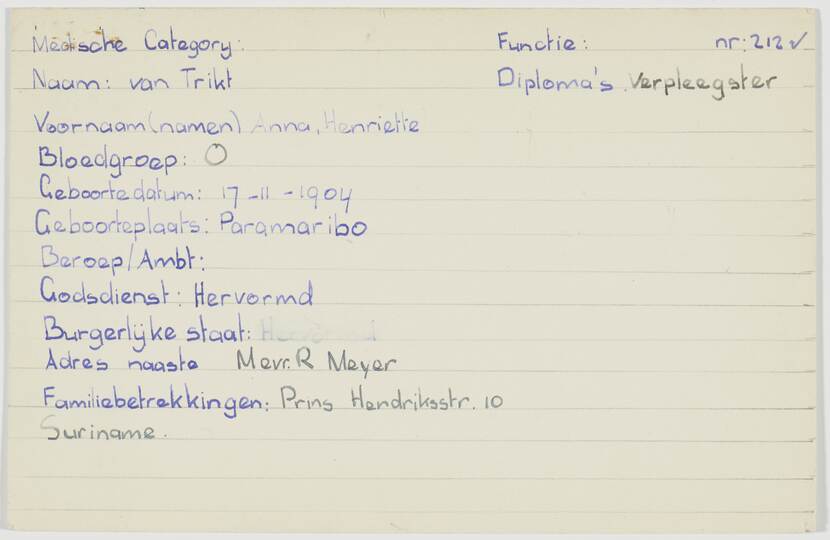 Medische Category: Functie: nr: 212 ✓
Naam: van Trikt Diploma's Verpleegster
Voornaam(namen) Anna, Henriette
Bloedgroep: O
Geboortedatum: 17-11-1904
Geboorteplaats: Paramaribo
Beroep/Ambt:
Godsdienst: Hervormd
Burgerlijke staat:
Adres naaste Mevr. R Meyer
Familiebetrekkingen: Prins Hendriksstr. 10
Suriname.